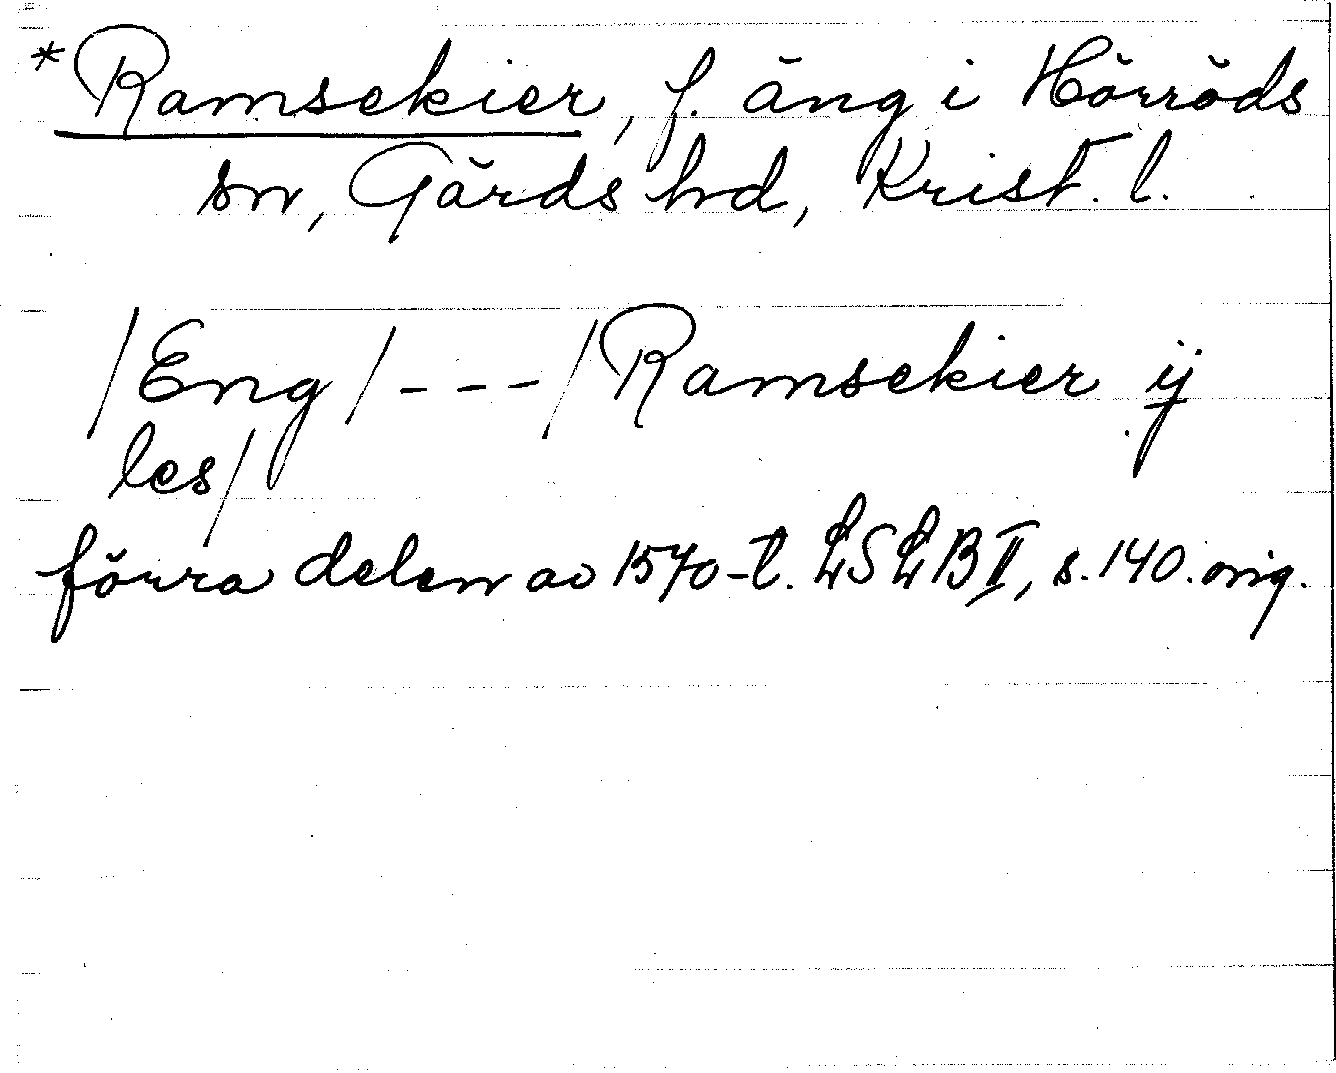 *Ramsekier, f. äng i Hörröds
sn, Gärds hd, Krist. l.
/Eng/---/Ramsekier ij
les/
förra delen av 1570-t. LSLB II, s. 140. orig.